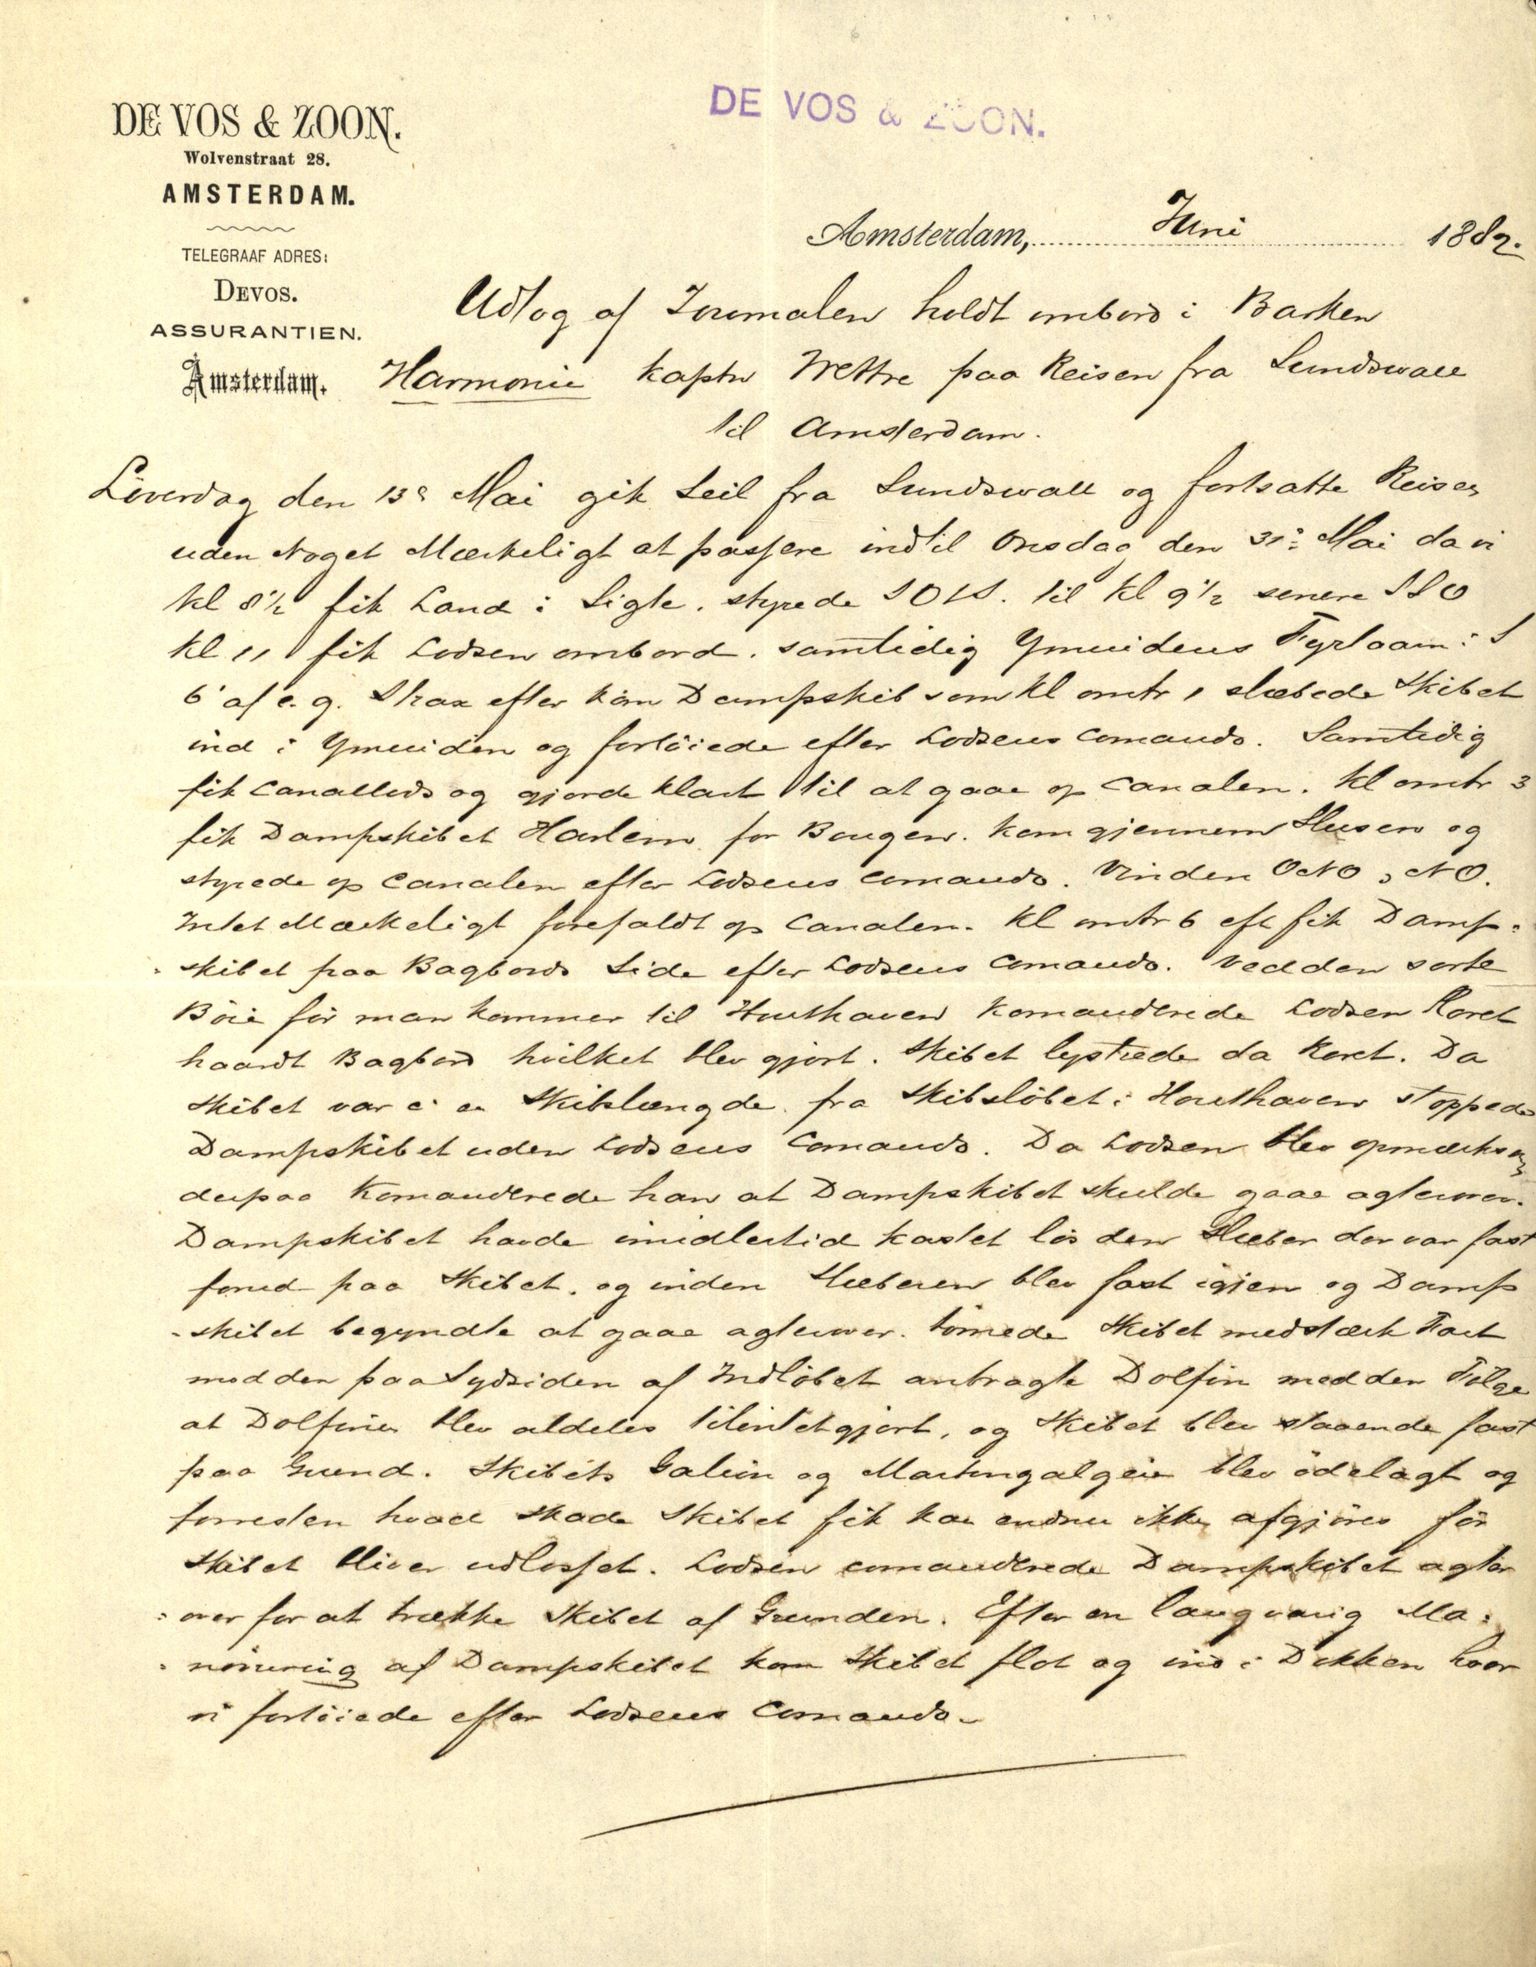 DE VOS & ZOON.
Wolvenstraat 28.
AMSTERDAM.
TELEGRAAF ADRES:
DEVOS.
ASSURANTIEN.
Amsterdam.
DE VOS & ZOON.
Amsterdam, Juni 1882.
Udtog af Journalen holdt ombord i Barken
Harmonie Kaptn Wettre paa Reisen fra Sundswall
til Amsterdam.
Löverdag den 13e Mai gik Seil fra Sundswall og fortsatte Reisen
uden Noget Mærkeligt at passere indtil Onsdag den 31e Mai da vi
Kl 8½ fik Land i Sigte. styrede til Kl 9½ senere SSO
Kl 11 fik Lodsen ombord. samtidig Ymuidens Fyrtaarn i S
6' af e. g. Strax efter kom Dampskib som Kl omtr 1 slæbede Skibet
ind i Ymuiden og fortöiede efter Lodsens Comando. Samtidig
fik Canallods og gjorde klart til at gaae op Canalen. Kl omtr 3
fik Dampskibet Harlem for Bougen. kom gjennem Slusen og
styrede op Canalen efter Lodsens Comando. Vinden ONO, NO.
Intet Mærkeligt forefaldt op Canalen. Kl omtr 6 eft fik Damp-
skibet paa Bagbords Side efter Lodsens Comando. Ved den sorte
Böie för man kommer til Houthaven Komanderede Lodsen Roret
haardt Bagbord hvilket blev gjort. Skibet lystrede da Roret. Da
Skibet var Skibslængde fra Skibslöbet i Houthaven stoppede
Dampskibet uden Lodsens Comando. Da Lodsen blev opmærksom
derpaa Komanderede han at Dampskibet skulde gaae agterover.
Dampskibet havde imidlertid kastet lös den Slæber der var fast
forud paa Skibet. og inden Slæberen blev fast igjen og Damp
-skibet begyndte at gaae agterover. törnede Skibet med stærk Fart
mod den paa Sydsiden af Indlöbet anbragte Dolfin med den Fölge
at Dolfinen blev aldeles tilintetgjort, og Skibet blev staaende fast
paa Grund. Skibets Galion og Martingalgeie blev ödelagt og
forresten hvad Skade Skibet fik kan endnu ikke afgjöres för
Skibet bliver udlosset. Lodsen comanderede Dampskibet agter
over for at trække Skibet af Grunden. Efter en langvarig Ma-
növrering af Dampskibet kom Skibet flot og ind i Dokken hvor
vi fortöiede efter Lodsens Comando.